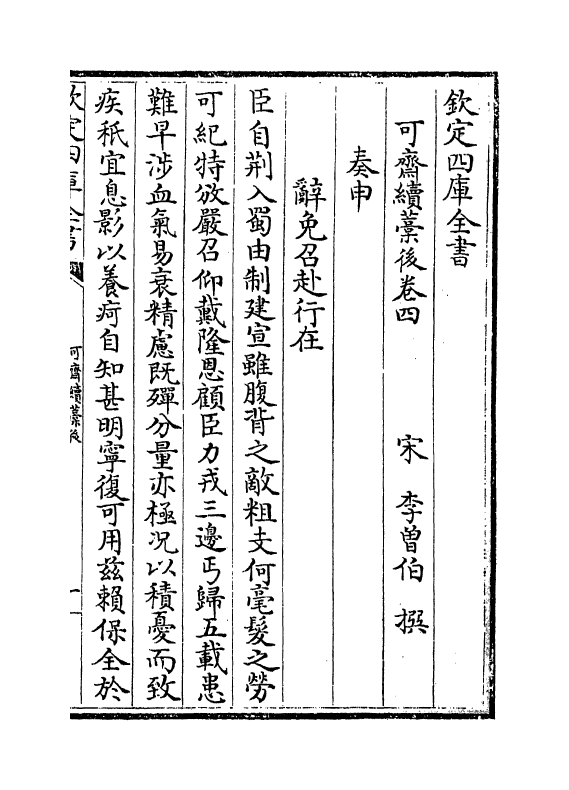 欽定四庫全書
可齋續藁後卷四
宋 李曾伯 撰
奏申
辭免召赴行在
臣自荆入蜀由制建宣雖腹背之敵粗支何毫髮之勞
可紀特攽嚴召仰戴隆恩顧臣力戎三邊丐歸五載患
難早涉血氣易衰精慮既殫分量亦極况以積憂而致
疾秪宜息影以養疴自知甚明寧復可用兹賴保全於
欽定四庫全書
可齋續藁後
一